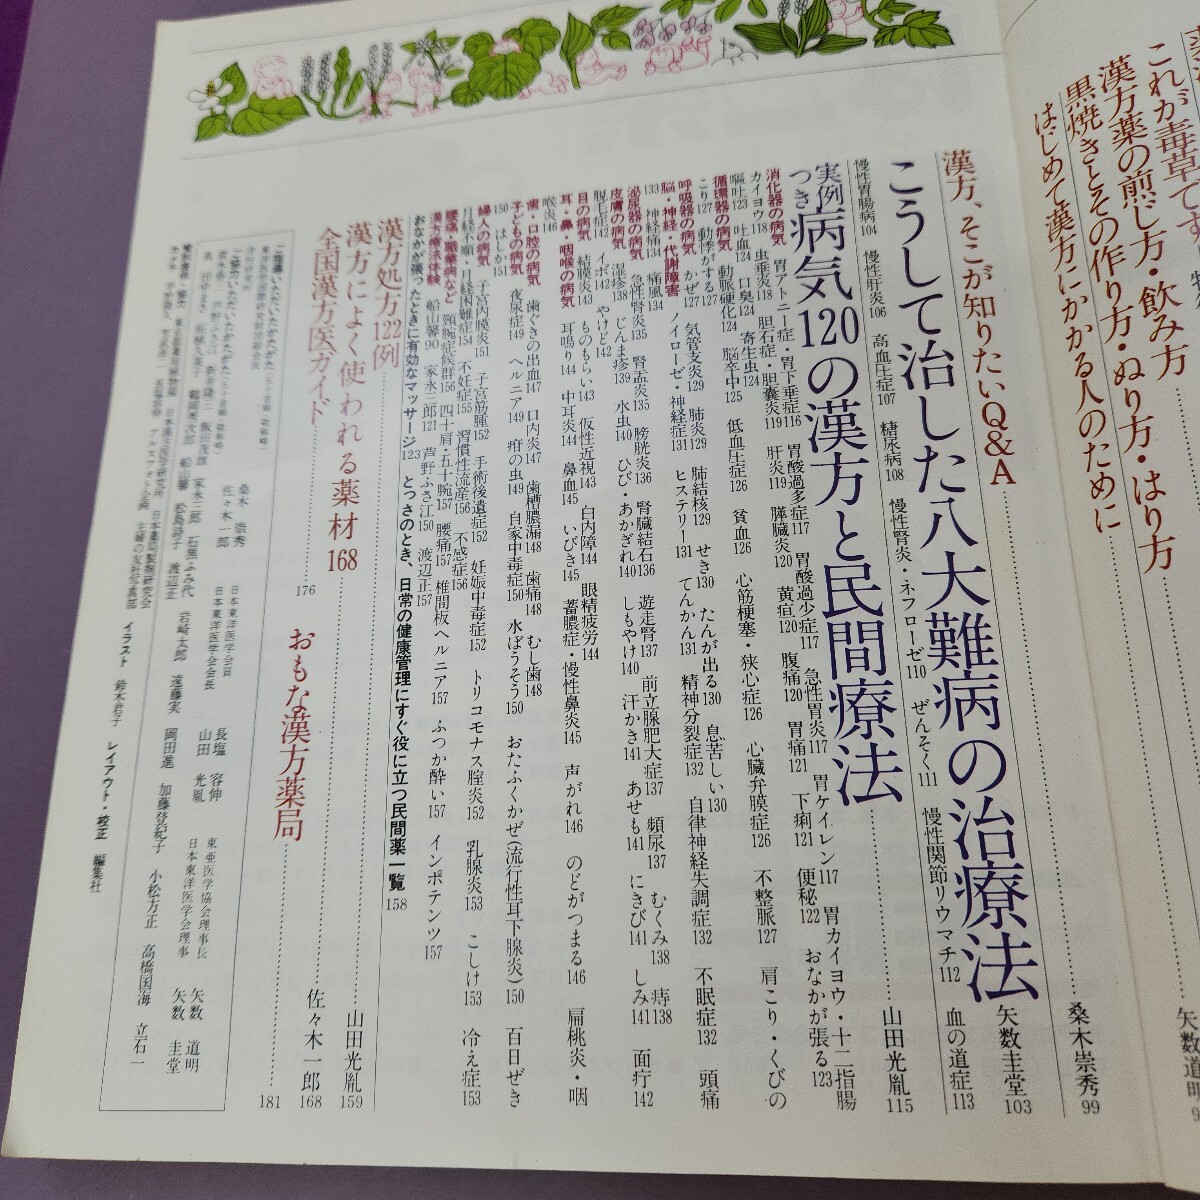 これが毒草です
漢方薬の煎じ方・飲み方
黒焼きとその作り方・ぬり方・はり方
はじめて漢方にかかる人のために
矢数道明
漢方、そこが知りたいQ&A
桑木崇秀 99
こうして治した八大難病の治療法
矢数圭堂 103
慢性胃腸病104 慢性肝炎106 高血圧症107 糖尿病108 慢性腎炎・ネフローゼ110 ぜんそく111 慢性関節リウマチ112 血の道症113
実例つき 病気120の漢方と民間療法
山田光胤 115
消化器の病気 胃アトニー症・胃下垂症116 胃酸過多症117 胃酸過少症117 急性胃炎117 胃ケイレン117 胃カイヨウ・十二指腸
カイヨウ118 虫垂炎118 胆石症・胆嚢炎119 肝炎119 膵臓炎120 黄疸120 腹痛120 胃痛121 下痢121 便秘122 おなかが張る123
嘔吐123 吐血124 口臭124 寄生虫124
循環器の病気 動脈硬化124 脳卒中125 低血圧症126 貧血126 心筋梗塞・狭心症126 心臓弁膜症126 不整脈127 肩こり・くびの
こり127 動悸がする127
呼吸器の病気 かぜ127 気管支炎129 肺炎129 肺結核129 せき130 たんが出る130 息苦しい130
脳・神経・代謝障害 ノイローゼ・神経症131 ヒステリー131 てんかん131 精神分裂症132 自律神経失調症132 不眠症132 頭痛
133 神経痛134 痛風134
泌尿器の病気 急性腎炎135 腎盂炎135 膀胱炎136 腎臓結石136 遊走腎137 前立腺肥大症137 頻尿137 むくみ138 痔138
皮膚の病気 湿疹138 じんま疹139 水虫140 ひび・あかぎれ140 しもやけ140 汗かき141 あせも141 にきび141 しみ141 面疔142
脱毛症142 イボ142 やけど142
目の病気 結膜炎143 ものもらい143 仮性近視143 白内障144 眼精疲労144
耳・鼻・咽喉の病気 耳鳴り144 中耳炎144 鼻血145 いびき145 蓄膿症・慢性鼻炎145 声がれ146 のどがつまる146 扁桃炎・咽
喉炎146
歯・口腔の病気 歯ぐきの出血147 口内炎147 歯槽膿漏148 歯痛148 むし歯148
子どもの病気 夜尿症149 ヘルニア149 疳の虫149 自家中毒症150 水ぼうそう150 おたふくかぜ(流行性耳下腺炎)150 百日ぜき
150 はしか151
婦人の病気 子宮内膜炎151 子宮筋腫152 手術後遺症152 妊娠中毒症152 トリコモナス腟炎152 乳腺炎153 こしけ153 冷え症153
月経不順・月経困難症154 不妊症155 習慣性流産156 不感症156
腰痛・職業病など 頸腕症候群156 四十肩・五十腕157 腰痛157 椎間板ヘルニア157 ふつか酔い157 インポテンツ157
漢方療法体験 船山馨90 家永三郎121 芦野ふさ江150 渡辺正157
おなかが張ったときに有効なマッサージ123 とっさのとき、日常の健康管理にすぐ役に立つ民間薬一覧158
漢方処方122例
山田光胤 159
漢方によく使われる薬材168
佐々木一郎 168
全国漢方医ガイド 176
おもな漢方薬局 181
桑木 崇秀 日本東洋医学会員
佐々木一郎
長塩 容伸 東亜医学協会理事長 矢数 道明
日本東洋医学会会長 山田 光胤 日本東洋医学会理事 矢数 圭堂
飯田茂雄 家永三郎 石黒ふみ代 岩崎太郎 遠藤実 岡田進 加藤登紀子 小松方正 高橋国海 立石一
船山馨 松島詩子 渡辺正
イラスト 鈴木君子 レイアウト・校正 編集社